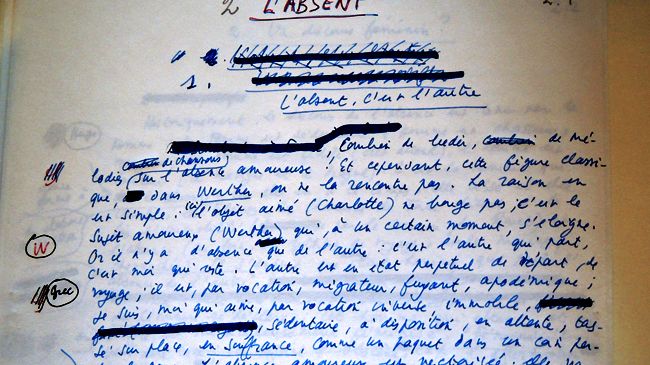 2 L'ABSENT
1.
L'absent, c'est l'autre
Combien de lieder, combien de mé-
de chansons
lodies, sur l'absence amoureuse ! Et cependant, cette figure classi-
que, dans Werther, on ne la rencontre pas. La raison en
est simple : ici l'objet aimé (Charlotte) ne bouge pas, c'est le
W sujet amoureux (Werther) qui, à un certain moment, s'éloigne.
Or il n'y a d'absence que de l'autre : c'est l'autre qui part,
c'est moi qui reste. L'autre est en état perpétuel de départ, de
grec voyage ; il est, par vocation, migrateur, fuyant, apodémique ;
je suis, moi qui aime, par vocation inverse, immobile,
sédentaire, à disposition, en attente, tas-
sé sur place, en souffrance, comme un paquet dans un coin per-
L'absence amoureuse est